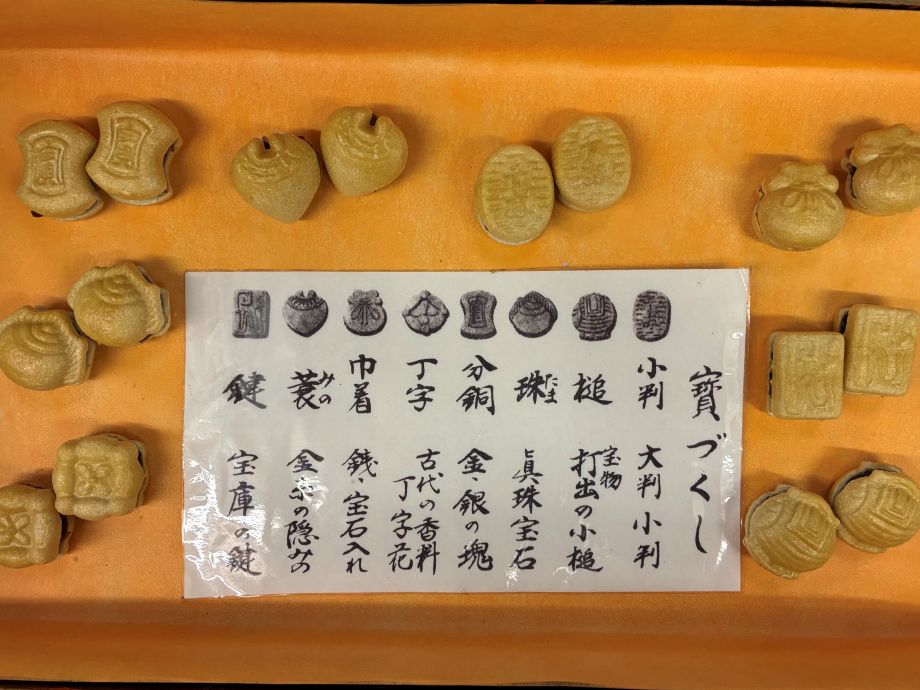 寶づくし
小判 大判 小判
槌 宝物 打出の小槌
珠 たま 眞珠宝石
分銅 金、銀の塊
丁字 古代の香料 丁字花
巾着 銭、宝石入れ
蓑 みの の隠みの
鍵 宝庫の鍵